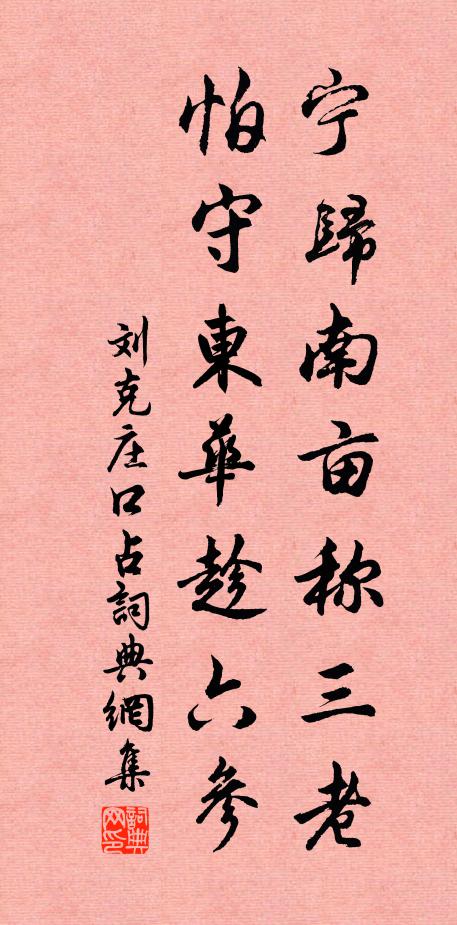 宁歸南亩称三老
怕守東華趁六参
刘克庄口占詞典網集
詞典网印